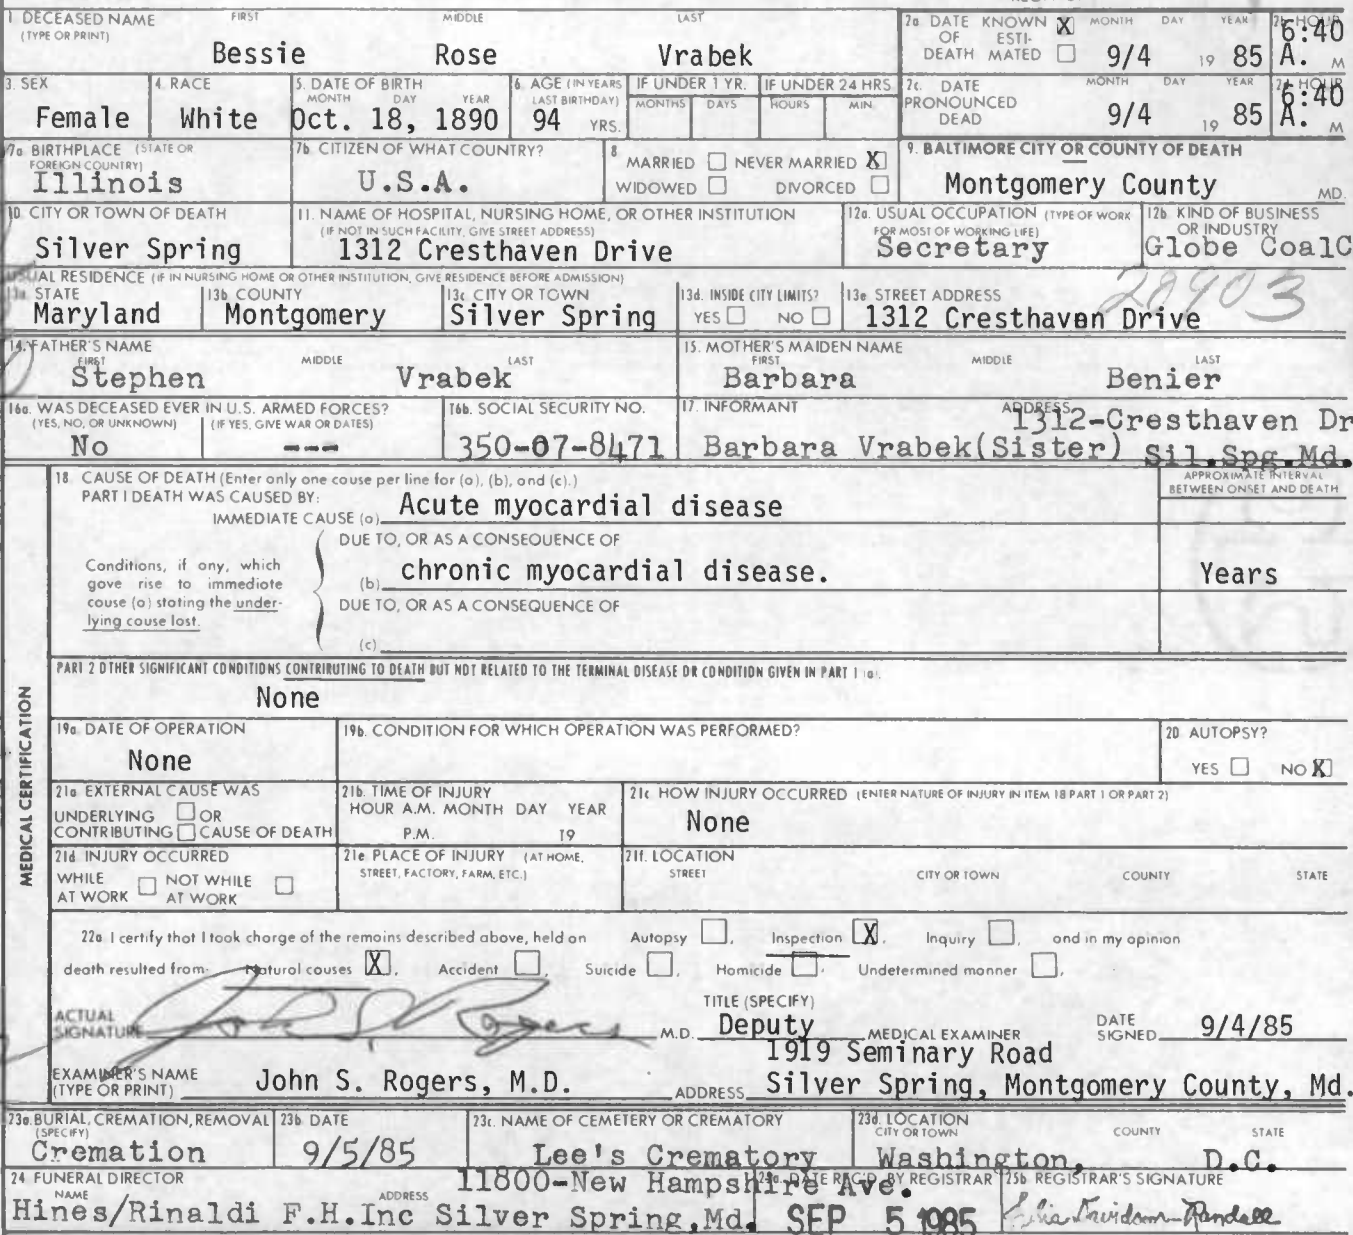 1 DECEASED NAME FIRST MIDDLE LAST
(TYPE OR PRINT)
Bessie Rose Vrabek
2a DATE KNOWN X MONTH DAY YEAR 2b HOUR
OF ESTI-
DEATH MATED 9/4 19 85 6:40 A. M
3. SEX Female
4. RACE White
5. DATE OF BIRTH
MONTH DAY YEAR
Oct. 18, 1890
6. AGE (IN YEARS LAST BIRTHDAY)
94 YRS.
IF UNDER 1 YR. IF UNDER 24 HRS
MONTHS DAYS HOURS MIN.
2c. DATE MONTH DAY YEAR HOUR
PRONOUNCED
DEAD 9/4 19 85 6:40 A. M
7a BIRTHPLACE (STATE OR
FOREIGN COUNTRY)
Illinois
7b. CITIZEN OF WHAT COUNTRY?
U.S.A.
8 MARRIED NEVER MARRIED X
WIDOWED DIVORCED
9. BALTIMORE CITY OR COUNTY OF DEATH
Montgomery County MD.
10. CITY OR TOWN OF DEATH
Silver Spring
11. NAME OF HOSPITAL, NURSING HOME, OR OTHER INSTITUTION
(IF NOT IN SUCH FACILITY, GIVE STREET ADDRESS)
1312 Cresthaven Drive
12a. USUAL OCCUPATION (TYPE OF WORK
FOR MOST OF WORKING LIFE)
Secretary
12b. KIND OF BUSINESS
OR INDUSTRY
Globe CoalC
USUAL RESIDENCE (IF IN NURSING HOME OR OTHER INSTITUTION, GIVE RESIDENCE BEFORE ADMISSION)
13a. STATE
Maryland
13b COUNTY
Montgomery
13c CITY OR TOWN
Silver Spring
13d. INSIDE CITY LIMITS?
YES NO
13e STREET ADDRESS
1312 Cresthaven Drive
20903
14. FATHER'S NAME
FIRST MIDDLE LAST
Stephen Vrabek
15. MOTHER'S MAIDEN NAME
FIRST MIDDLE LAST
Barbara Benier
16a. WAS DECEASED EVER IN U.S. ARMED FORCES?
(YES, NO, OR UNKNOWN) (IF YES, GIVE WAR OR DATES)
No ---
16b. SOCIAL SECURITY NO.
350-07-8471
17. INFORMANT ADDRESS
1312-Cresthaven Dr
Barbara Vrabek(Sister) Sil.Spg.Md.
MEDICAL CERTIFICATION
18. CAUSE OF DEATH (Enter only one cause per line for (a), (b), and (c).)
PART I DEATH WAS CAUSED BY:
IMMEDIATE CAUSE (a) Acute myocardial disease
APPROXIMATE INTERVAL
BETWEEN ONSET AND DEATH
DUE TO, OR AS A CONSEQUENCE OF
Conditions, if any, which
gave rise to immediate
cause (a) stating the under-
lying cause last.
(b) chronic myocardial disease. Years
DUE TO, OR AS A CONSEQUENCE OF
(c)
PART 2 OTHER SIGNIFICANT CONDITIONS CONTRIBUTING TO DEATH BUT NOT RELATED TO THE TERMINAL DISEASE OR CONDITION GIVEN IN PART 1 (a).
None
19a DATE OF OPERATION
None
19b. CONDITION FOR WHICH OPERATION WAS PERFORMED?
20 AUTOPSY?
YES NO X
21a EXTERNAL CAUSE WAS
UNDERLYING OR
CONTRIBUTING CAUSE OF DEATH
21b. TIME OF INJURY
HOUR A.M. MONTH DAY YEAR
P.M. 19
21c HOW INJURY OCCURRED (ENTER NATURE OF INJURY IN ITEM 18 PART 1 OR PART 2)
None
21d INJURY OCCURRED
WHILE NOT WHILE
AT WORK AT WORK
21e PLACE OF INJURY (AT HOME,
STREET, FACTORY, FARM, ETC.)
21f. LOCATION
STREET CITY OR TOWN COUNTY STATE
22a I certify that I took charge of the remains described above, held an Autopsy, Inspection X, Inquiry, and in my opinion
death resulted from: Natural causes X, Accident, Suicide, Homicide, Undetermined manner,
ACTUAL
SIGNATURE John S. Rogers M.D.
TITLE (SPECIFY)
Deputy MEDICAL EXAMINER
DATE
SIGNED 9/4/85
1919 Seminary Road
EXAMINER'S NAME
(TYPE OR PRINT) John S. Rogers, M.D. ADDRESS Silver Spring, Montgomery County, Md.
23a. BURIAL, CREMATION, REMOVAL
(SPECIFY)
Cremation
23b. DATE
9/5/85
23c. NAME OF CEMETERY OR CREMATORY
Lee's Crematory
23d. LOCATION
CITY OR TOWN COUNTY STATE
Washington, D.C.
24 FUNERAL DIRECTOR
NAME ADDRESS
11800-New Hampshire Ave.
Hines/Rinaldi F.H.Inc Silver Spring,Md.
DATE REC'D. BY REGISTRAR
SEP 5 1985
25b REGISTRAR'S SIGNATURE
Davidson-Randall